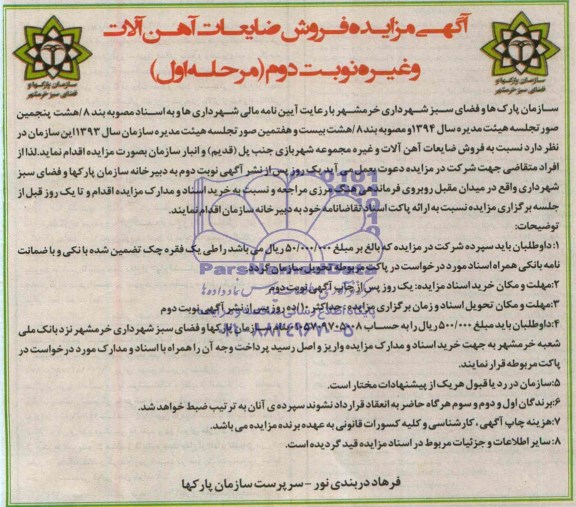 آگهی مزایده فروش ضایعات آهن آلات
وغیره نوبت دوم (مرحله اول)
سازمان پارکها و
فضای سبز خرمشهر
سازمان پارکها و
فضای سبز خرمشهر
سازمان پارک ها و فضای سبز شهرداری خرمشهر با رعایت آیین نامه مالی شهرداری ها و به اسناد مصوبه بند ۸/هشت پنجمین
صور تجلسه هیئت مدیره سال ۱۳۹۴ و مصوبه بند ۸/هشت بیست و هفتمین صور تجلسه هیئت مدیره سازمان سال ۱۳۹۳ این سازمان در
نظر دارد نسبت به فروش ضایعات آهن آلات و غیره مجموعه شهربازی جنب پل (قدیم) و انبار سازمان بصورت مزایده اقدام نماید.لذا از
افراد متقاضی جهت شرکت در مزایده دعوت بعمل می آید یک روز پس از نشر آگهی نوبت دوم به دبیرخانه سازمان پارکها و فضای سبز
شهرداری واقع در میدان مقبل روبروی فرماندهی هنگ مرزی مراجعه و نسبت به خرید اسناد و مدارک مزایده اقدام و تا یک روز قبل از
جلسه برگزاری مزایده نسبت به ارائه پاکت اسناد تقاضانامه خود به دبیر خانه سازمان اقدام نمایند.
توضیحات:
۱: داوطلبان باید سپرده شرکت در مزایده که بالغ بر مبلغ ۵۰/۰۰۰/۰۰۰ ریال می باشد را طی یک فقره چک تضمین شده بانکی و با ضمانت
نامه بانکی همراه اسناد مورد درخواست در پاکت مربوطه تحویل سازمان گردد
۲: مهلت و مکان خرید اسناد مزایده: یک روز پس از چاپ آگهی نوبت دوم
۳: مهلت و مکان تحویل اسناد و زمان برگزاری مزایده: حداکثر ۱۰/ده روز پس از نشر آگهی نوبت دوم
۴: داوطلبان باید مبلغ ۵۰۰/۰۰۰ ریال را به حساب سازمان پارکها و فضای سبز شهرداری خرمشهر نزد بانک ملی
شعبه خرمشهر به جهت خرید اسناد و مدارک مزایده واریز و اصل رسید پرداخت وجه آن را همراه با اسناد و مدارک مورد درخواست در
پاکت مربوطه قرار نمایند.
۵: سازمان در رد یا قبول هر یک از پیشنهادات مختار است.
۶: برندگان اول و دوم و سوم هرگاه حاضر به انعقاد قرارداد نشوند سپرده ی آنان به ترتیب ضبط خواهد شد.
۷: هزینه چاپ آگهی، کارشناسی و کلیه کسورات قانونی به عهده برنده مزایده می باشد.
۸: سایر اطلاعات و جزئیات مربوط در اسناد مزایده قید گردیده است.
فرهاد دربندی نور - سرپرست سازمان پارکها